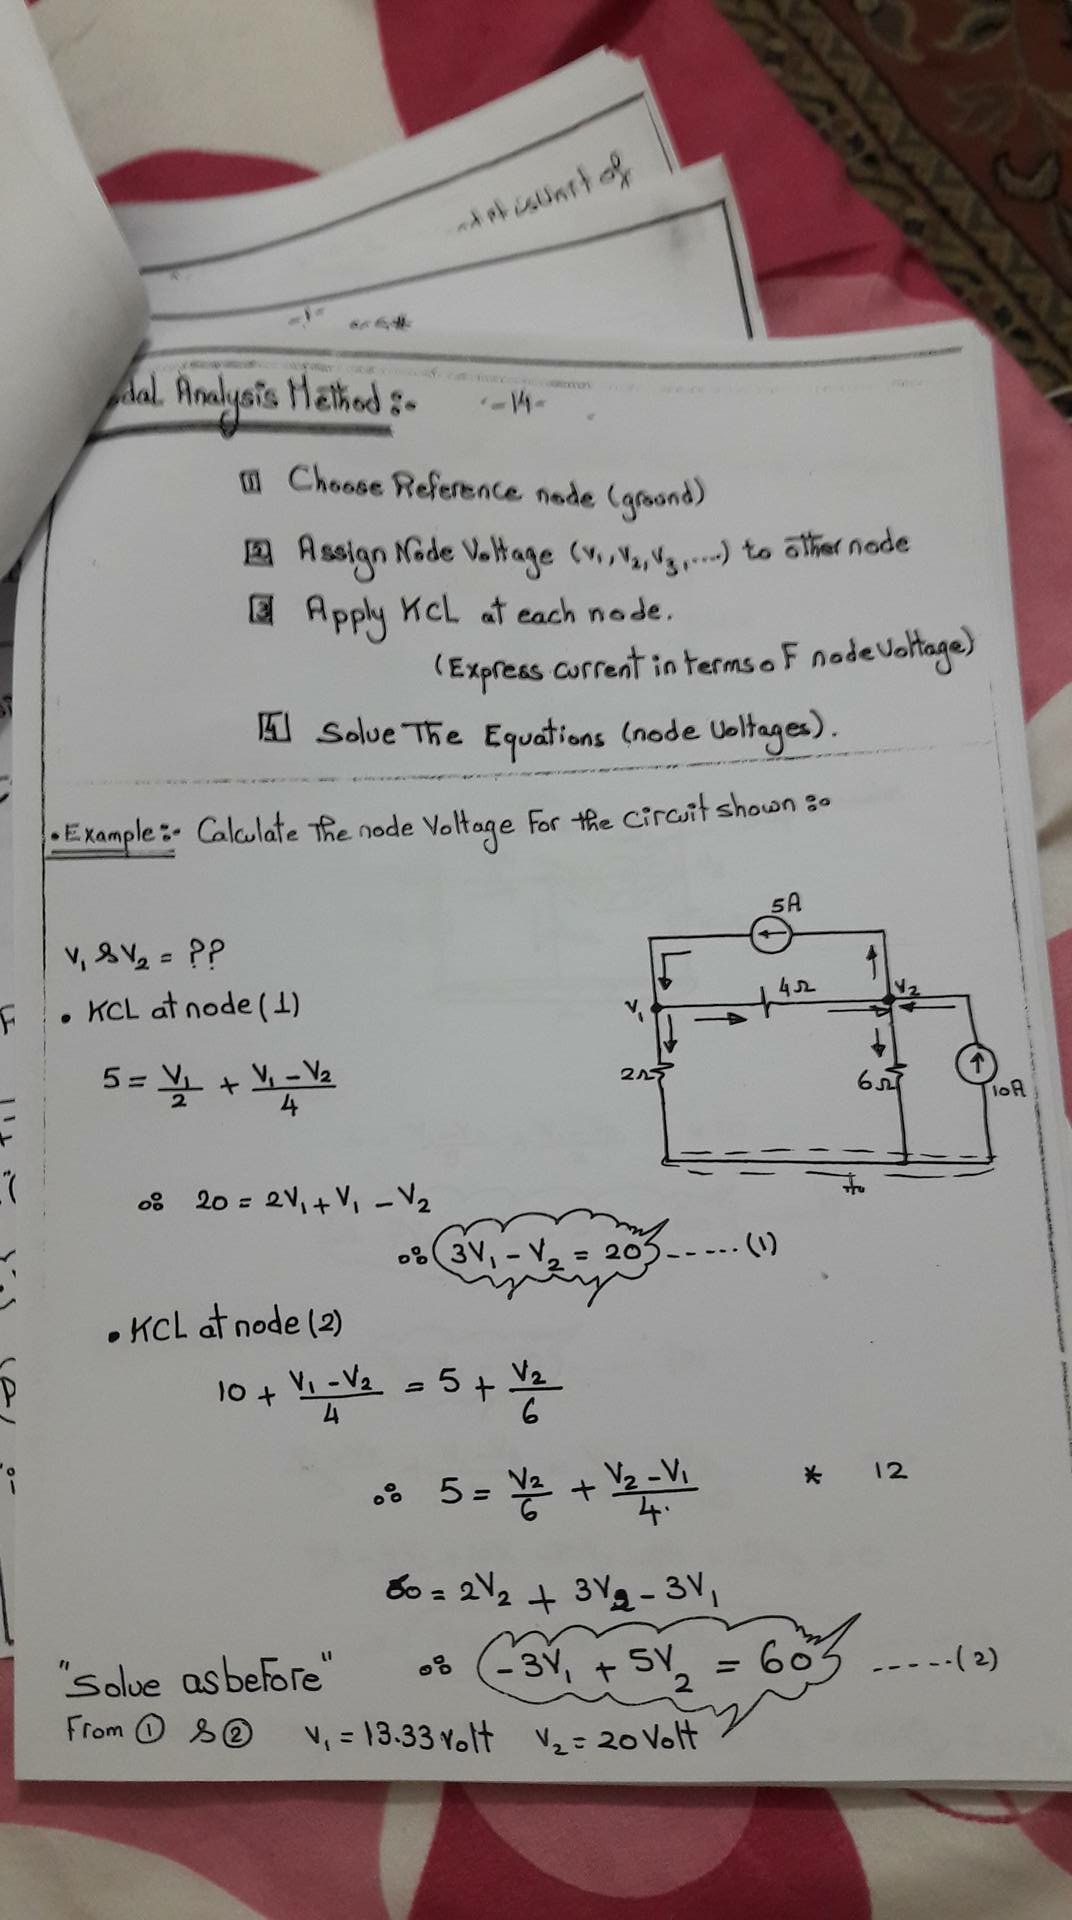 dal Analysis Method :- -14-
1 Choose Reference node (ground)
2 Assign Node Voltage (V₁, V₂, V₃, ....) to other node
3 Apply KCL at each node.
(Express current in terms of node Voltage)
4 Solve The Equations (node Voltages).
• Example :- Calculate the node Voltage For the Circuit shown :-
5A
V₁ & V₂ = ??
4Ω
V₁
V₂
• KCL at node (1)
5 = V₁/2 + (V₁ - V₂)/4
2Ω
6Ω
10A
∴ 20 = 2V₁ + V₁ - V₂
∴ 3V₁ - V₂ = 20 ------ (1)
• KCL at node (2)
10 + (V₁ - V₂)/4 = 5 + V₂/6
∴ 5 = V₂/6 + (V₂ - V₁)/4 * 12
60 = 2V₂ + 3V₂ - 3V₁
"Solve as before" ∴ -3V₁ + 5V₂ = 60 ------ (2)
From ① & ② V₁ = 13.33 volt V₂ = 20 Volt